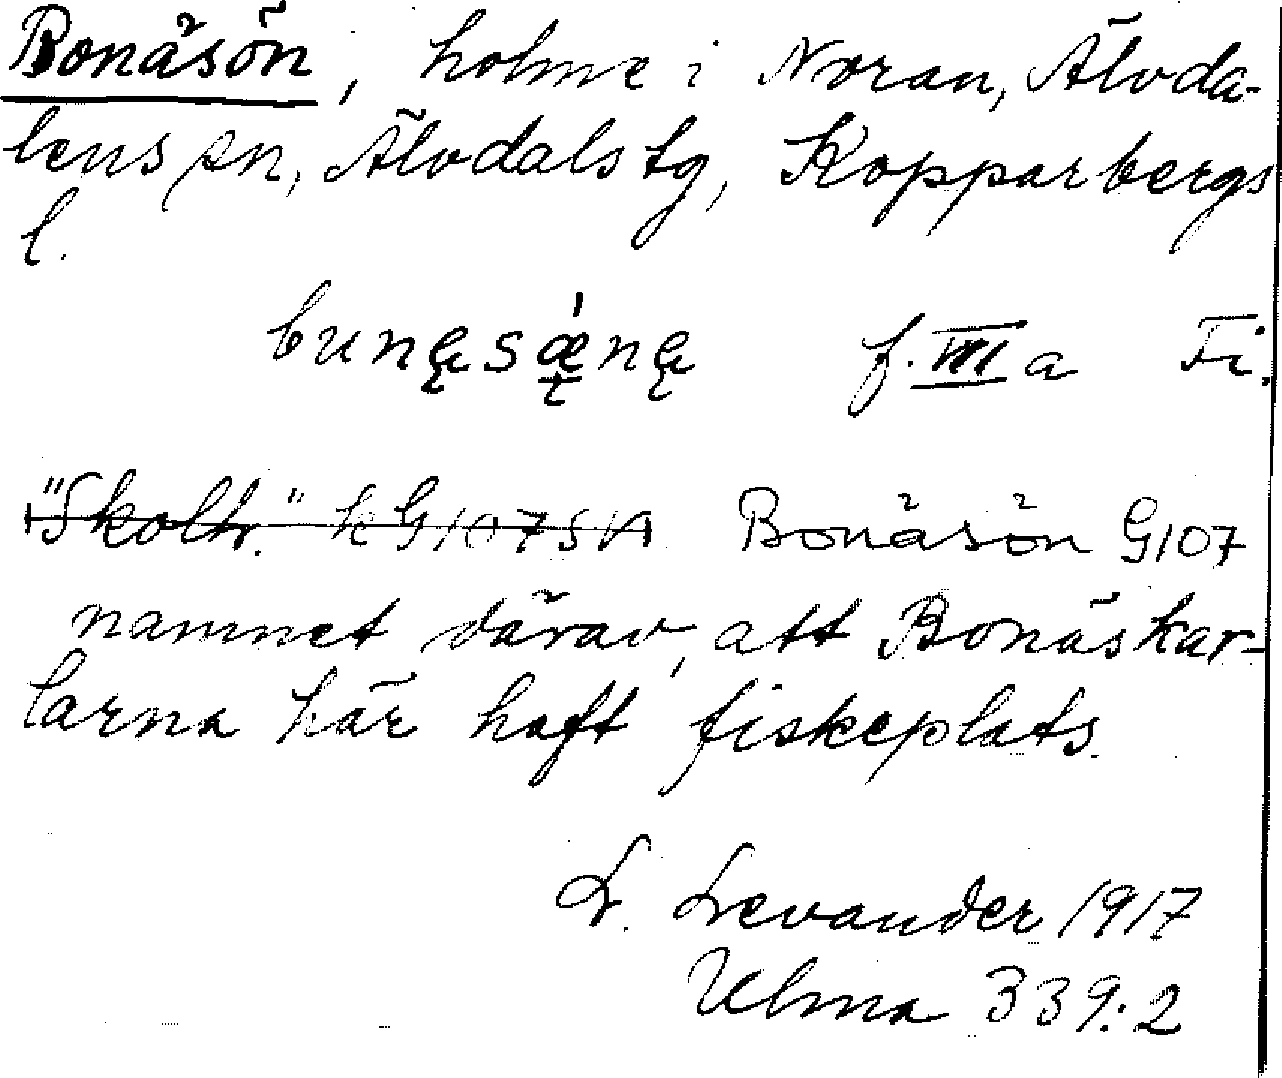 Bonäsön, holme i Noran, Älvda-
lens sn, Älvdals tg, Kopparbergs
l.
bunęsǽnę f. III a Ti.
"Skoltr." kG107SV Bonäsön G107
namnet därav, att Bonäskar-
larna här haft fiskeplats.
L. Levander 1917
Ulma 339:2